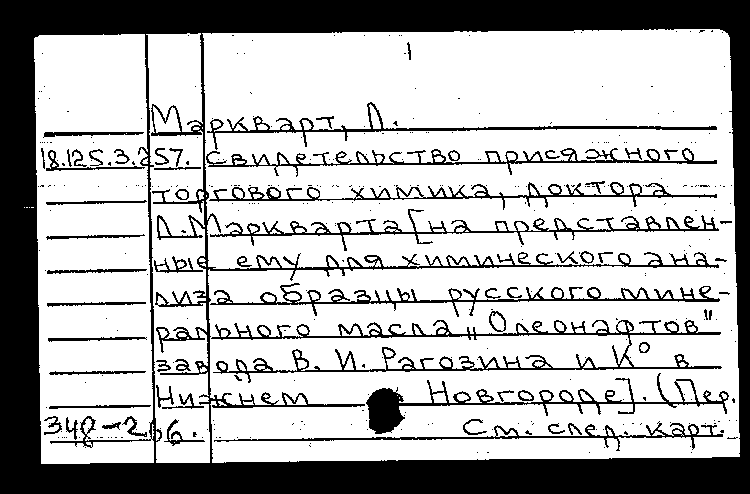 1
Маркварт, Л.
18.125.3.257. Свидетельство присяжного
торгового химика, доктора –
Л. Маркварта [на представлен-
ные ему для химического ана-
лиза образцы русского мине-
рального масла „Олеонафтов"
завода В. И. Рагозина и К° в
Нижнем Новгороде]. (Пер.
348-266. См. след. карт.